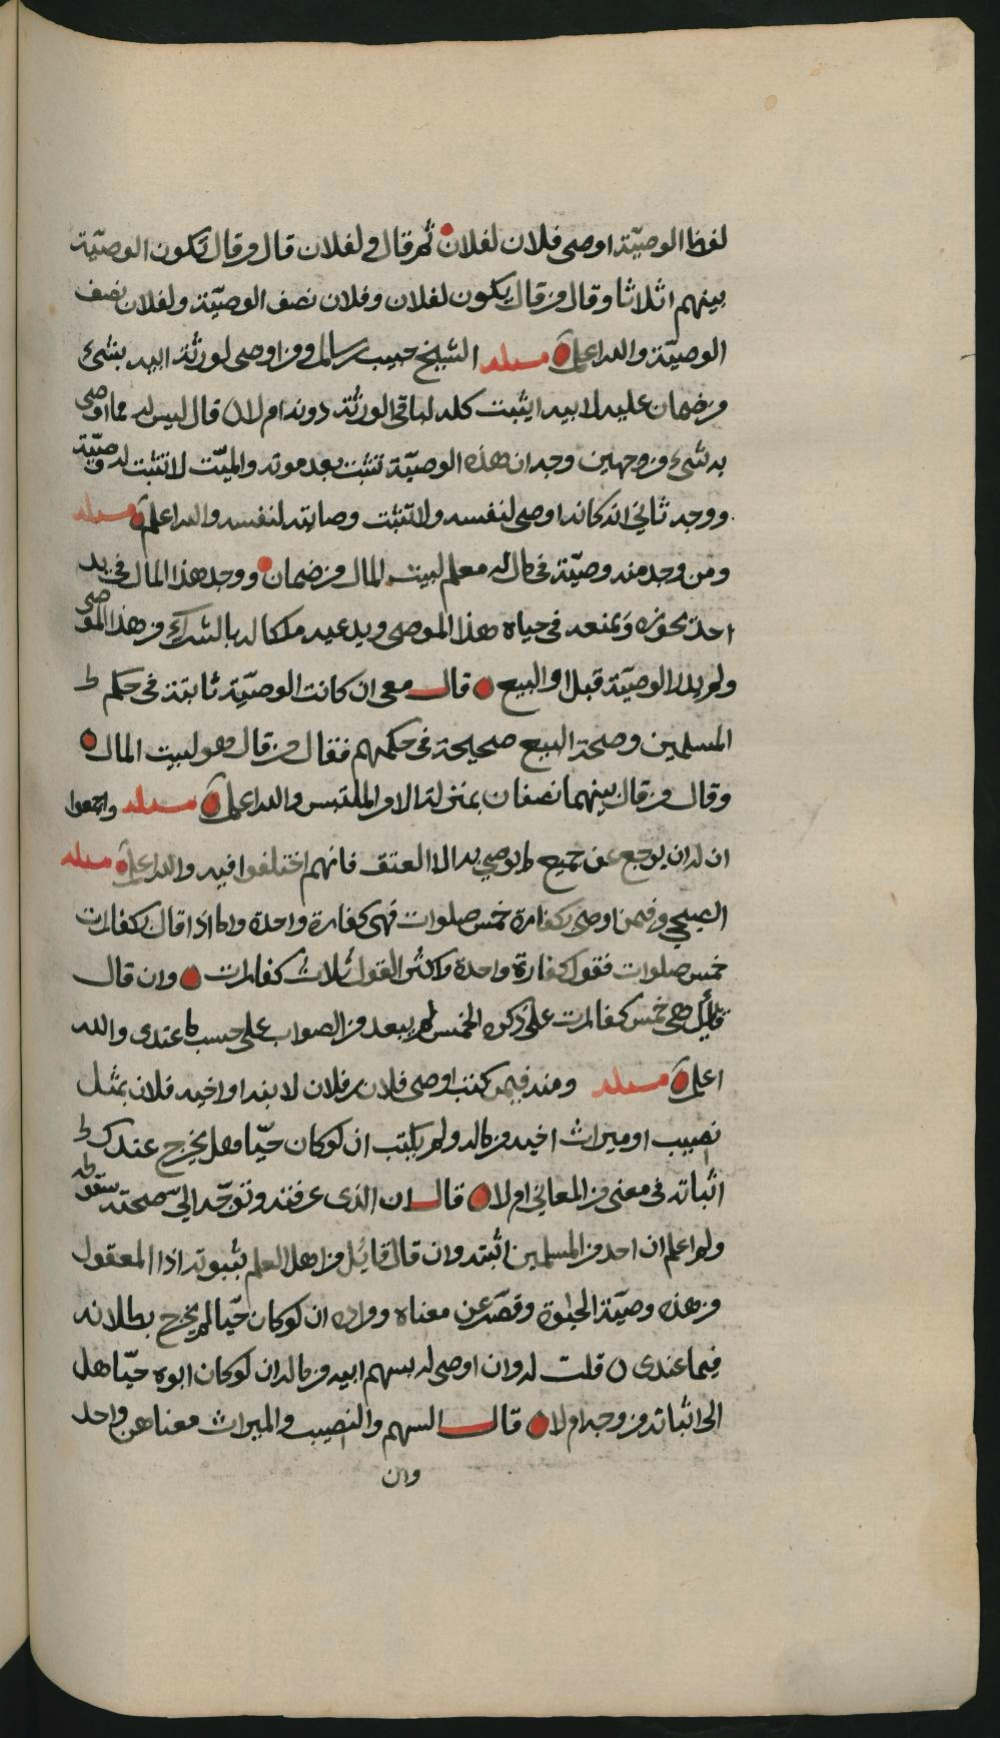 لفظ الوصيّة اوصى فلان لفلان ثم قال ولفلان قال وقال تكون الوصيّة
بينهم اثلاثا وقال من قال يكون لفلان وفلان نصف الوصيّة ولفلان نصف
الوصيّة والله اعلم مسئله الشيخ حبيب بن سالم ومن اوصى لورثة ابيه بشيء
من ضمان عليه لابيه ايثبت كله لباقي الورثة دونه ام لا قال ليس له مما اوصى
به شيء من وجهين وجه ان هذه الوصيّة تثبت بعد موته والميّت لا تثبت له وصيّة
ووجه ثاني انه كانه اوصى لنفسه ولا تثبت وصايته لنفسه والله اعلم مسئله
ومن وجد منه وصيّة في مال له معلم لبيت المال من ضمان ووجد هذا المال في يد
احد يحوزه ويمنعه في حياة هذا الموصى ويدعيه ملكا له بالشراء من هذا الموصى
ولم يدر الوصيّة قبل او البيع قال معي ان كانت الوصيّة ثابتة في حكم
المسلمين وصحة البيع صحيحة في حكمهم فقال من قال هو لبيت المال
وقال من قال بينهما نصفان بمنزلة الامر الملتبس والله اعلم مسئله واجمعوا
ان له ان يرجع عن جميع ما يوصي به الا العتق فانهم اختلفوا فيه والله اعلم مسئله
الصبحي وفيمن اوصى بكفارة خمس صلوات فهي كفارة واحدة واما اذا قال بكفارات
خمس صلوات فقول كفارة واحدة واكثر القول ثلاث كفارات وان قال
قائل هي خمس كفارات على ذكره الخمس لم يبعد من الصواب على حسب ما عندي والله
اعلم مسئله ومنه فيمن كتب اوصى فلان بن فلان لابنه او اخيه فلان بمثل
نصيب او ميراث اخيه من ماله ولم يكتب ان لو كان حيّا هل يخرج عندك
اثباته في معنى من المعاني ام لا قال ان الذي عرفته وتوجّه اليّ صحته سقوطه
ولم اعلم ان احد من المسلمين اثبته وان قال قائل من اهل العلم بثبوته اذا المعقول
من هذه وصيّة الحظوة وقصّر عن معناه ومراده ان لو كان حيّا لم يخرج بطلانه
فيما عندي قلت له وان اوصى له بسهم ابيه من ماله ان لو كان ابوه حيّا هل
الى اثباته من وجه ام لا قال السهم والنصيب والميراث معناهن واحد
وان